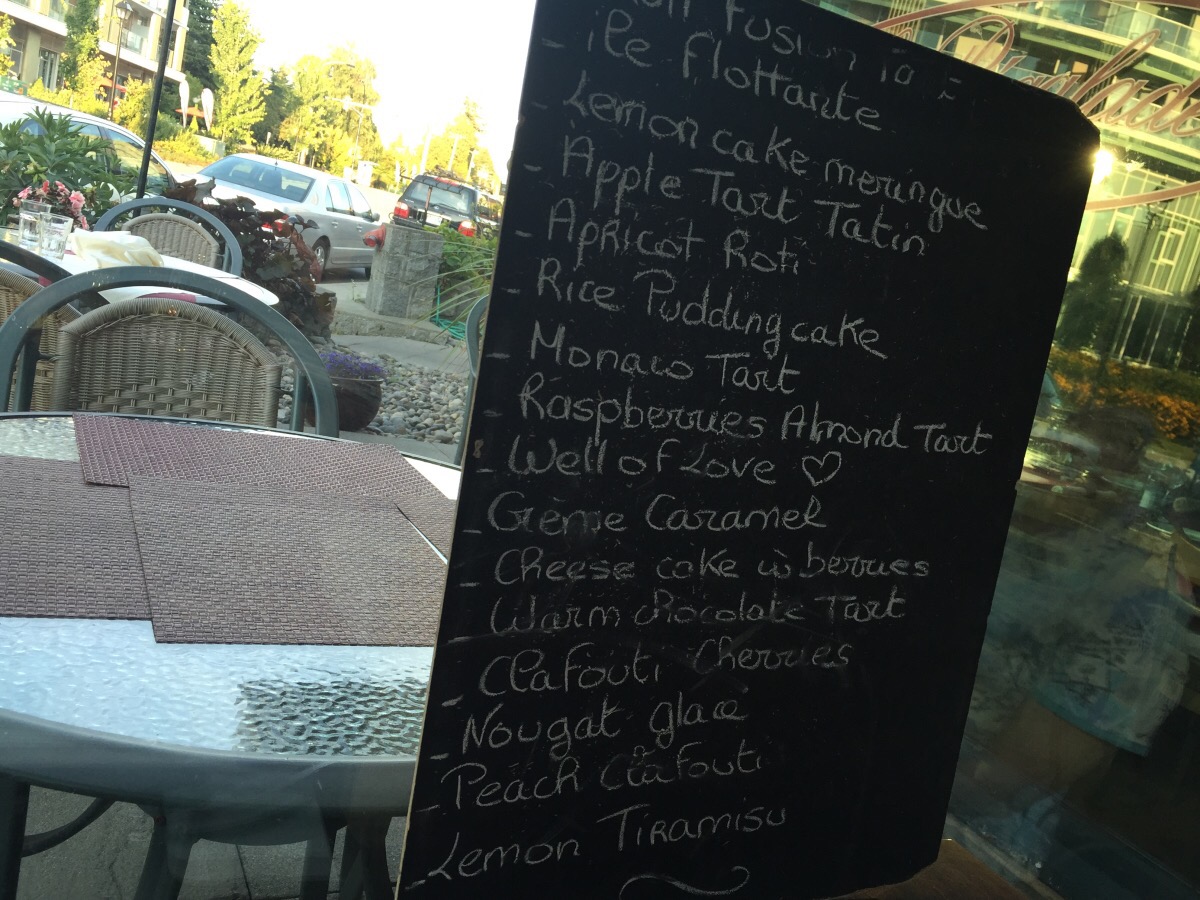 Fusion 10
- ile flottante
- Lemon cake meringue
- Apple Tart Tatin
- Apricot Roti
- Rice Pudding cake
- Monaco Tart
- Raspberries Almond Tart
- Well of Love ♡
- Crème Caramel
- Cheese cake w berries
- Warm chocolate Tart
- Clafouti Cherries
- Nougat glacé
- Peach Clafouti
- Lemon Tiramisu